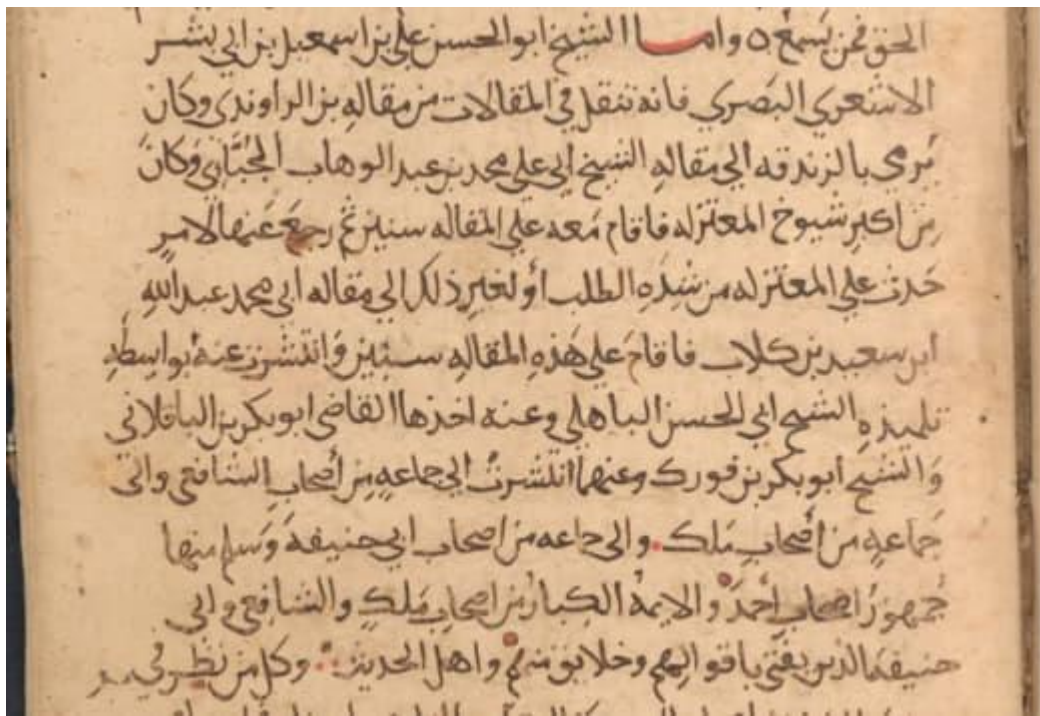 الحق فمن يسمع ٥ واما الشيخ ابو الحسن علي بن اسمعيل بن ابي بشر
الاشعري البَصري فانه تنقل في المقالات من مقالهِ بن الراوندي وكان
يُرمي بالزندقه الي مقالهِ الشيخ ابي علي محمد بن عبد الوهاب الجُبَّائي وَكانَ
مِن اكبرِ شيوخ المعتزله فاقام مَعه علي المقاله سنين ثم رجعَ عَنها لامرٍ
حَدث علي المعتزله من شِدهِ الطلب أو لغيرِ ذلك الي مقاله ابي محمد عبد اللهِ
ابن سعيد بن كلاب فاقامَ علي هَذهِ المقالهِ سنين وَانتشرت عنهُ بواسِطهِ
تلميذهِ الشيخ ابي الحسن الباهلي وعنه اخذها القاضي ابو بكر بن الباقلاني
وَالشيخ ابو بكر بن فورك وعنهما انتشرتْ الي جماعهٍ مِن أصحابِ الشافعي والي
جَماعهٍ من أصحابِ مَلك والي جماعه من اصحاب ابي حنيفهَ وَسلم منها
جُمهورُ اصحابِ أحمدَ والايمهُ الكِبارُ مِن اصحابِ مَلكٍ والشافعِي وابي
حنيفه الذين يفتي باقوالهم وخلايق منهم واهل الحديث وكل من نظر في